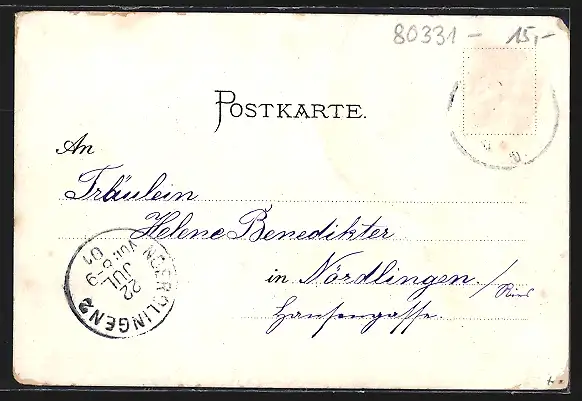 80331- 15,-
POSTKARTE.
An
Fräulein
Helene Benedikter
in Nördlingen./Ries
Hansengasse.
NOERDLINGEN 2
22
JUL
01
Vor. 8-9